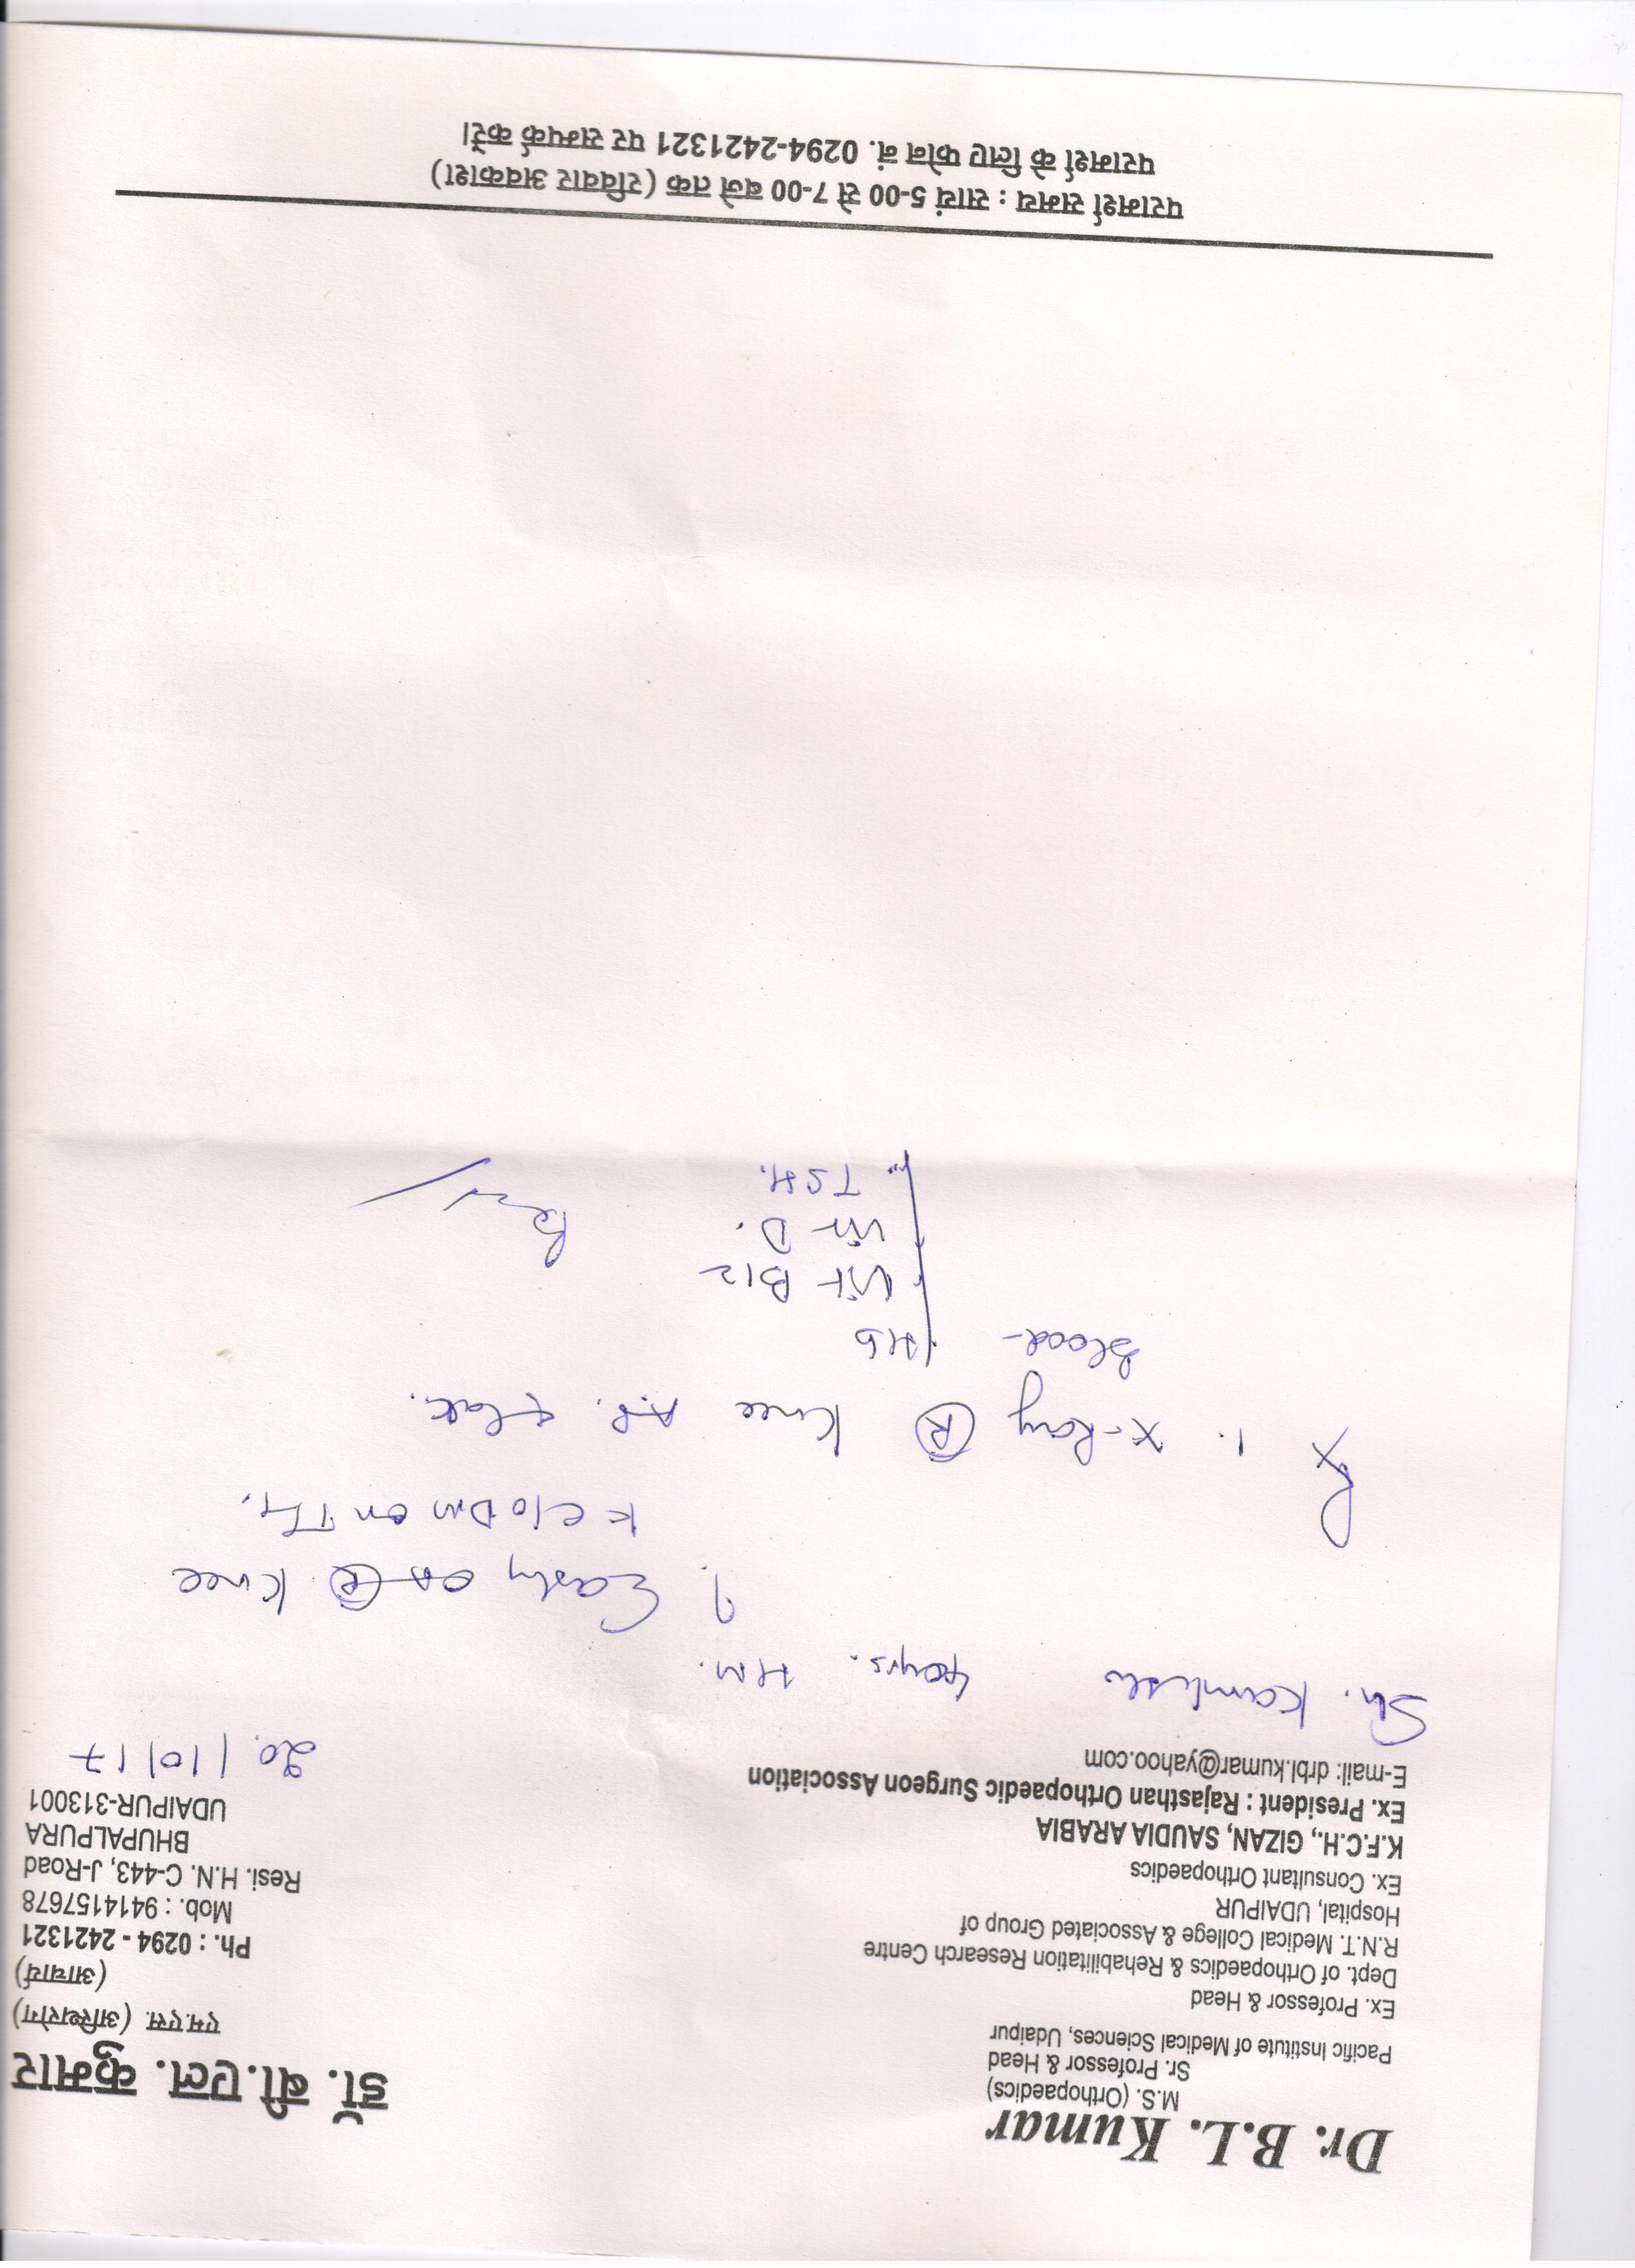 Dr. B.L. Kumar
M.S. (Orthopaedics)
Sr. Professor & Head
Pacific Institute of Medical Sciences, Udaipur
Ex. Professor & Head
Dept. of Orthopaedics & Rehabilitation Research Centre
R.N.T. Medical College & Associated Group of
Hospital, UDAIPUR
Ex. Consultant Orthopaedics
K.F.C.H., GIZAN, SAUDIA ARABIA
Ex. President : Rajasthan Orthopaedic Surgeon Association
E-mail: drbl.kumar@yahoo.com
डॉ. बी.एल. कुमार
एम.एस. (अस्थिरोग)
(आचार्य)
Ph. : 0294 - 2421321
Mob. : 9414157678
Resi. H.N. C-443, J-Road
BHUPALPURA
UDAIPUR-313001
20/10/17
Sh. 40yrs. HM.
? Early OA (R) Knee
K c/o DM on TT,
Rx 1. X-Ray (R) Knee A.P. & lat.
Blood- Hb
Vit B12
Vit D.
TSH.
परामर्श समय : सायं 5-00 से 7-00 बजे तक (रविवार अवकाश)
परामर्श के लिए फोन नं. 0294-2421321 पर सम्पर्क करें।